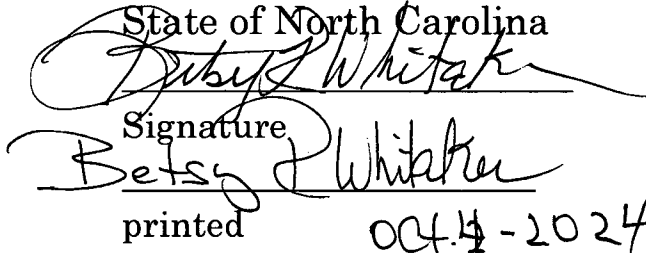 State of North Carolina
Betsy P Whitaker
Signature
Betsy P Whitaker
printed
Oct. - 2024